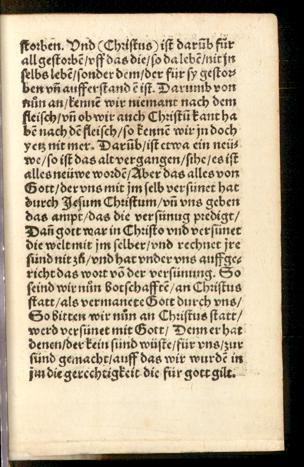 storben. Vnd (Christus) ist darūb für
all gestorbē/vff das die/so da lebē/nit jn
selbs lebē/sonder dem/der für sy gestor
ben vn̄ aufferstandē ist. Darumb von
nūn an/kennē wir niemant nach dem
fleisch/vn̄ ob wir auch Christū kant ha
bē nach dē fleisch/so kennē wir jn doch
yetz nit mer. Darūb/ist etwa ein neüs
we/so ist das alt vergangen/sihe/es ist
alles neüwe wordē/Aber das alles von
Gott/der vns mit jm selb versünet hat
durch Jesum Christum/vn̄ vns geben
das ampt/das die versünug predigt/
Dan̄ gott war in Christo vnd versünet
die welt mit jm selber/vnd rechnet jre
sünd nit zů/vnd hat vnder vns auffge-
richt das wort vō der versünung. So
seind wir nūn botschafftē/an Christus
statt/als vermanete Gott durch vns/
So bitten wir nūn an Christus statt/
werd versünet mit Gott/ Denn er hat
denen/der kein sünd wüste/für vns/zur
sünd gemacht/auff das wir wurdē in
jm die gerechtigkeit die für gott gilt.